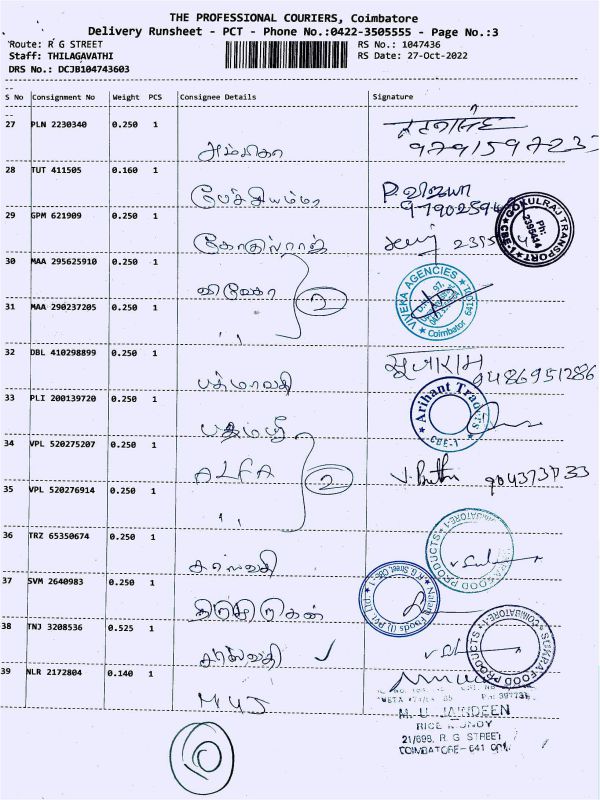 THE PROFESSIONAL COURIERS, Coimbatore
Delivery Runsheet - PCT - Phone No.:0422-3505555 - Page No.:3
Route: R G STREET RS No.: 1047436
Staff: THILAGAVATHI RS Date: 27-Oct-2022
DRS No.: DCJB104743603
S No Consignment No Weight PCS Consignee Details Signature
27 PLN 2230340 0.250 1
அம்பிகா
28 TUT 411505 0.160 1
பேச்சியம்மா P. விஜயா
29 GPM 621909 0.250 1
கோகுல்ராஜ்
GOKULRAJ TRANSPORT
CBE-1
Ph: 2395414
30 MAA 295625910 0.250 1
விவேகா 2
VIVEKA AGENCIES
Coimbator
31 MAA 290237205 0.250 1
"
32 DBL 410298899 0.250 1
பத்மாவதி
33 PLI 200139720 0.250 1
Arihant Trad
CBE-1
34 VPL 520275207 0.250 1
ALFA 2
35 VPL 520276914 0.250 1
"
36 TRZ 65350674 0.250 1
FOOD PRODUCTS
COIMBATORE-1
37 SVM 2640983 0.250 1
R G Street, CBE-1
38 TNJ 3208536 0.525 1
சரஸ்வதி ✓
SUKRA FOOD PRODUCTS
COIMBATORE-1
39 NLR 2172804 0.140 1
MUJ
M. U. JAINDEEN
21/699, R. G STREET
COIMBATORE-641 001.